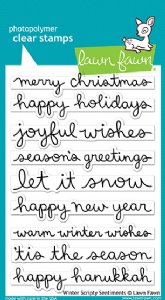 photopolymer
clear stamps
lawn fawn
merry christmas
happy holidays
joyful wishes
season's greetings
let it snow
happy new year
warm winter wishes
'tis the season
happy hanukkah
Winter Scripty Sentiments © Lawn Fawn